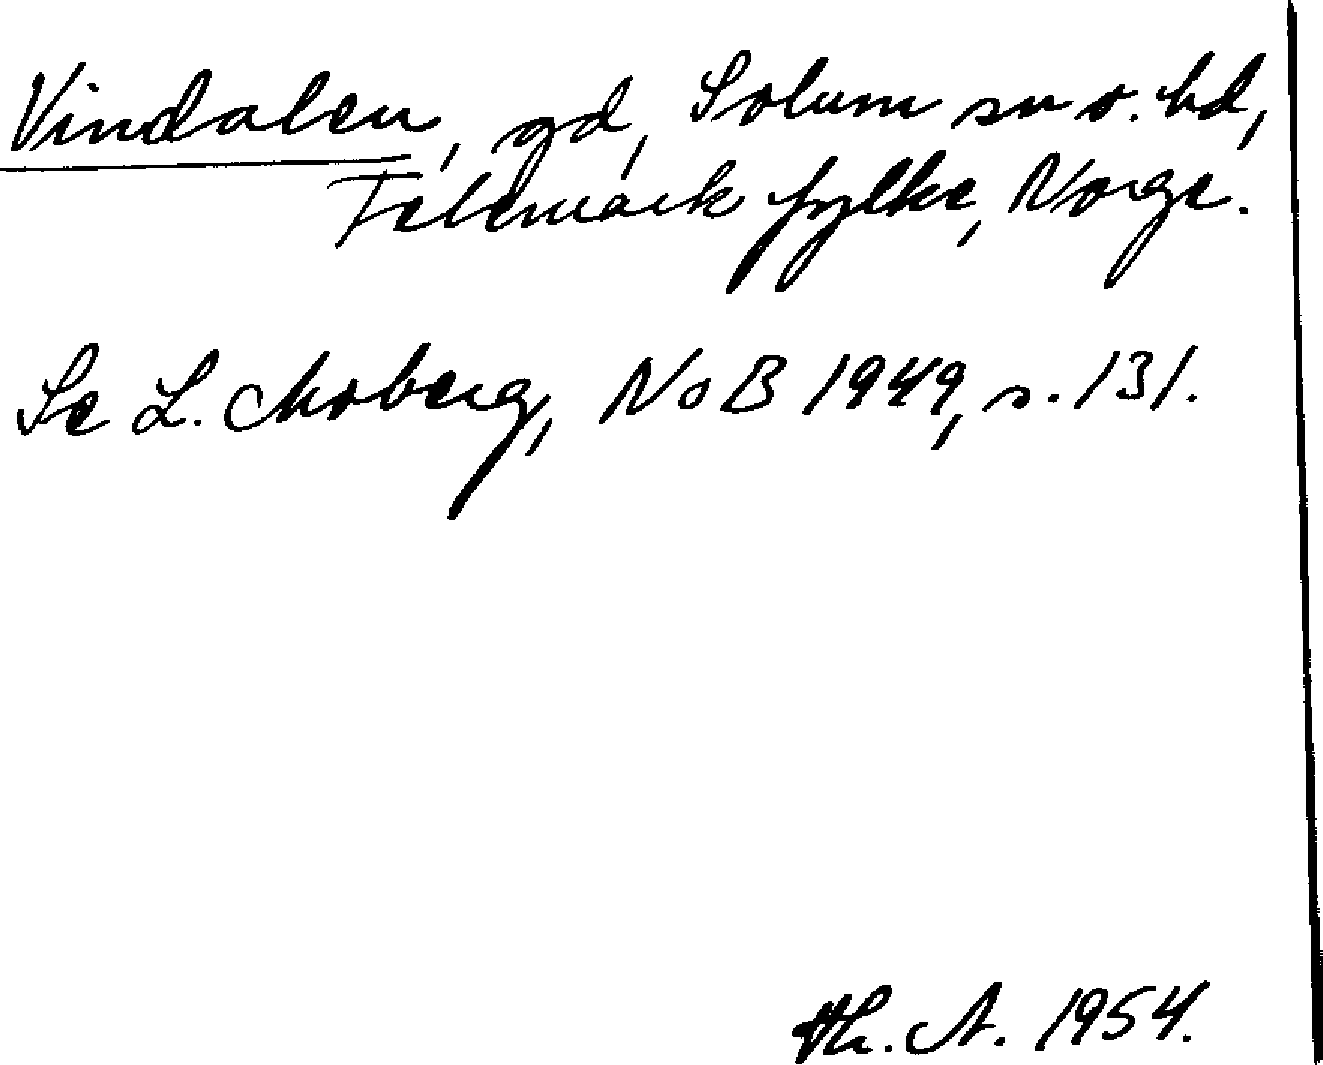 Vindalen, gd, Solum sn o. hd,
Telemark fylke, Norge.
Se L. Moberg, NoB 1949, s. 131.
Th. A. 1954.